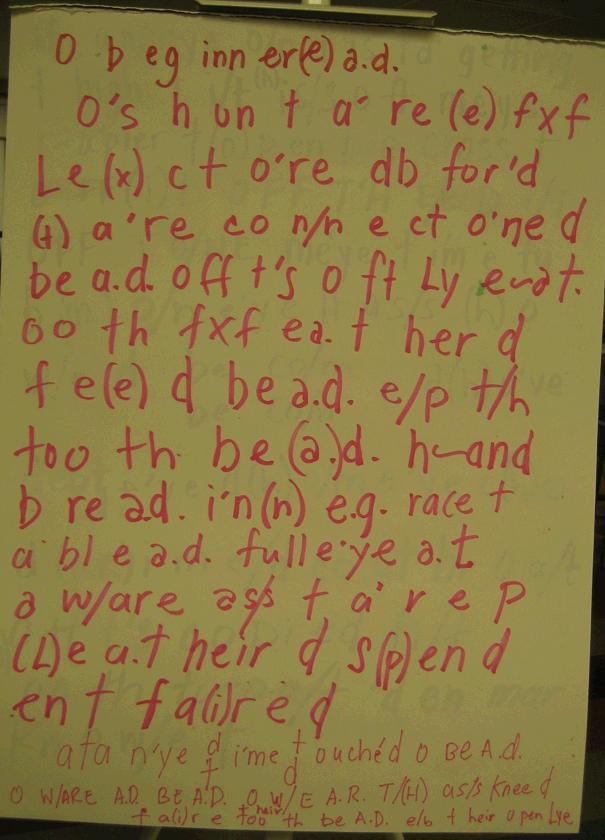 O b eg inn er(e) a.d.
O's h un t a' re (e) fxf
Le (x) c t o're db for'd
(t) a 're co n/n e ct o'ne d
be a.d. off t's o ft Ly e~at.
oo th fxf ea. t her d
f e(e) d be a.d. e/p t/h
too th be (a.)d. h~and
b re a.d. i'n(n) e.g. race t
a' bl e a.d. full e'ye a.t
a w/are as/s t a' r e p
(L)e a.t heir d s(p)en d
en t fa(i)r e d
at a n'ye d/t i'me t/d ouchéd o Be A.d.
O W/ARE A.D. BE A.D. O W/E A.R. T/(H) as/s Knee d
f a(i)r e too heir th be A.D. e/o t heir open Lye